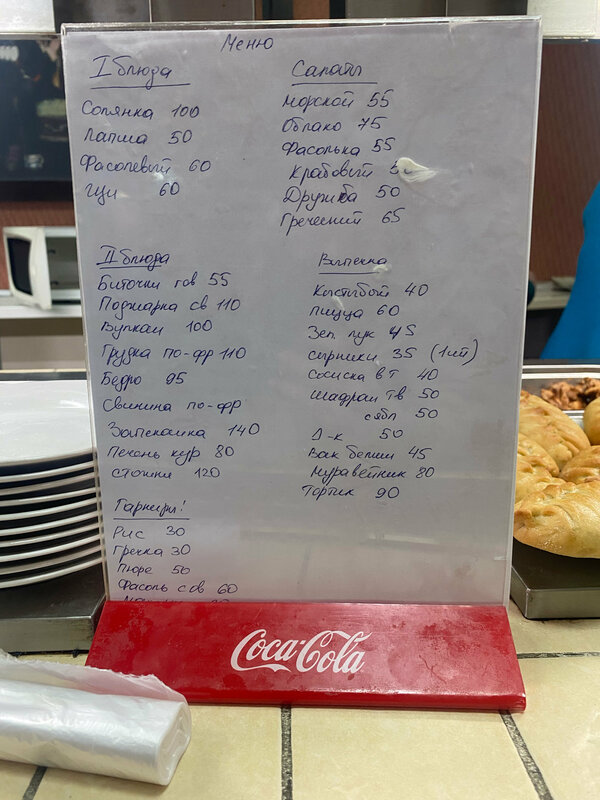 Меню
I блюда
Солянка 100
Лапша 50
Фасолевый 60
Щи 60
Салаты
Морской 55
Облако 75
Фасолька 55
Крабовый
Дружба 50
Греческий 65
II блюда
Биточки гов 55
Поджарка св 110
Вулкан 100
Грудка по-фр 110
Бедро 95
Свинина по-фр
Запеканка 140
Печень кур 80
стожки 120
Гарниры!
Рис 30
Гречка 30
Пюре 50
Фасоль с ов 60
Выпечка
Кыстыбый 40
пицца 60
Зел лук 45
сырники 35 (1шт)
Сосиска в т 40
Шафран тв 50
с ябл 50
Д-к 50
Вак белиш 45
Муравейник 80
Тортик 90
Coca-Cola